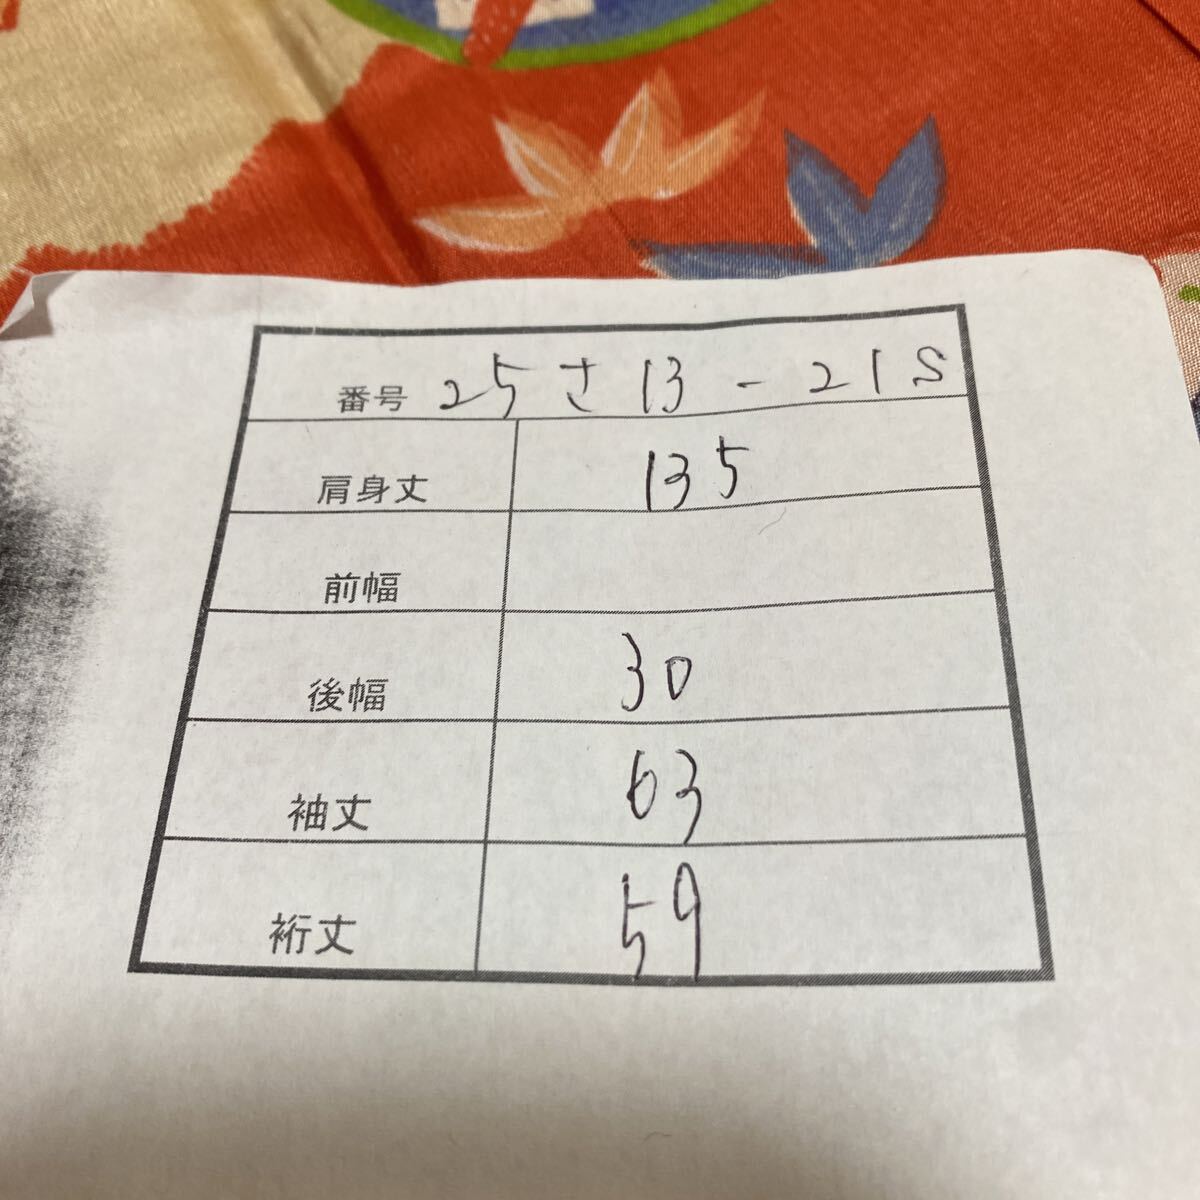 番号 25さ13-21S
肩身丈 135
前幅
後幅 30
袖丈 63
裄丈 59